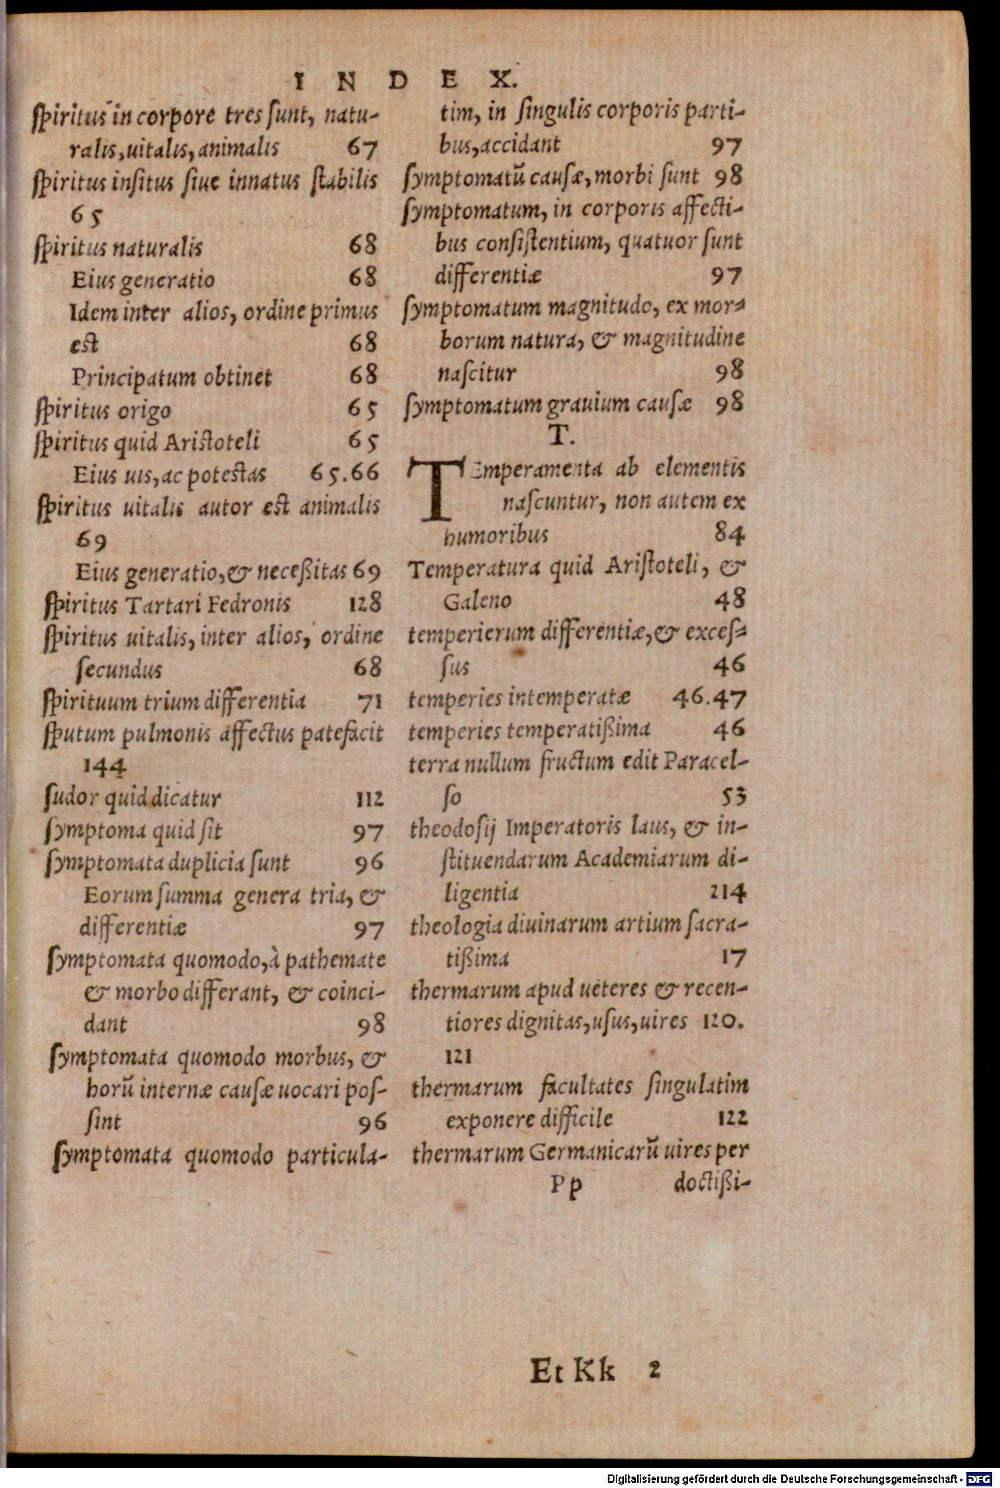 INDEX.
ſpiritus in corpore tres ſunt, natu-
ralis, uitalis, animalis 67
ſpiritus inſitus ſiue innatus ſtabilis
65
ſpiritus naturalis 68
Eius generatio 68
Idem inter alios, ordine primus
est 68
Principatum obtinet 68
ſpiritus origo 65
ſpiritus quid Ariſtoteli 65
Eius uis, ac potestas 65.66
ſpiritus uitalis autor est animalis
69
Eius generatio, & neceßitas 69
ſpiritus Tartari Fedronis 128
ſpiritus uitalis, inter alios, ordine
ſecundus 68
ſpirituum trium differentia 71
ſputum pulmonis affectus patefacit
144
ſudor quid dicatur 112
ſymptoma quid ſit 97
ſymptomata duplicia ſunt 96
Eorum ſumma genera tria, &
differentiæ 97
ſymptomata quomodo, à pathemate
& morbo differant, & coinci-
dant 98
ſymptomata quomodo morbus, &
horũ internæ cauſæ uocari poſ-
ſint 96
ſymptomata quomodo particula-
tim, in ſingulis corporis parti-
bus, accidant 97
ſymptomatũ cauſæ, morbi ſunt 98
ſymptomatum, in corporis affecti-
bus conſiſtentium, quatuor ſunt
differentiæ 97
ſymptomatum magnitudo, ex mor-
borum natura, & magnitudine
naſcitur 98
ſymptomatum grauium cauſæ 98
T.
TEmperamenta ab elementis
naſcuntur, non autem ex
humoribus 84
Temperatura quid Ariſtoteli, &
Galeno 48
temperierum differentiæ, & exceſ-
ſus 46
temperies intemperatæ 46.47
temperies temperatißima 46
terra nullum fructum edit Paracel-
ſo 53
theodoſij Imperatoris laus, & in-
ſtituendarum Academiarum di-
ligentia 214
theologia diuinarum artium ſacra-
tißima 17
thermarum apud ueteres & recen-
tiores dignitas, uſus, uires 120.
121
thermarum facultates ſingulatim
exponere difficile 122
thermarum Germanicarũ uires per
Pp doctißi-
Et Kk 2
Digitalisierung gefördert durch die Deutsche Forschungsgemeinschaft - DFG